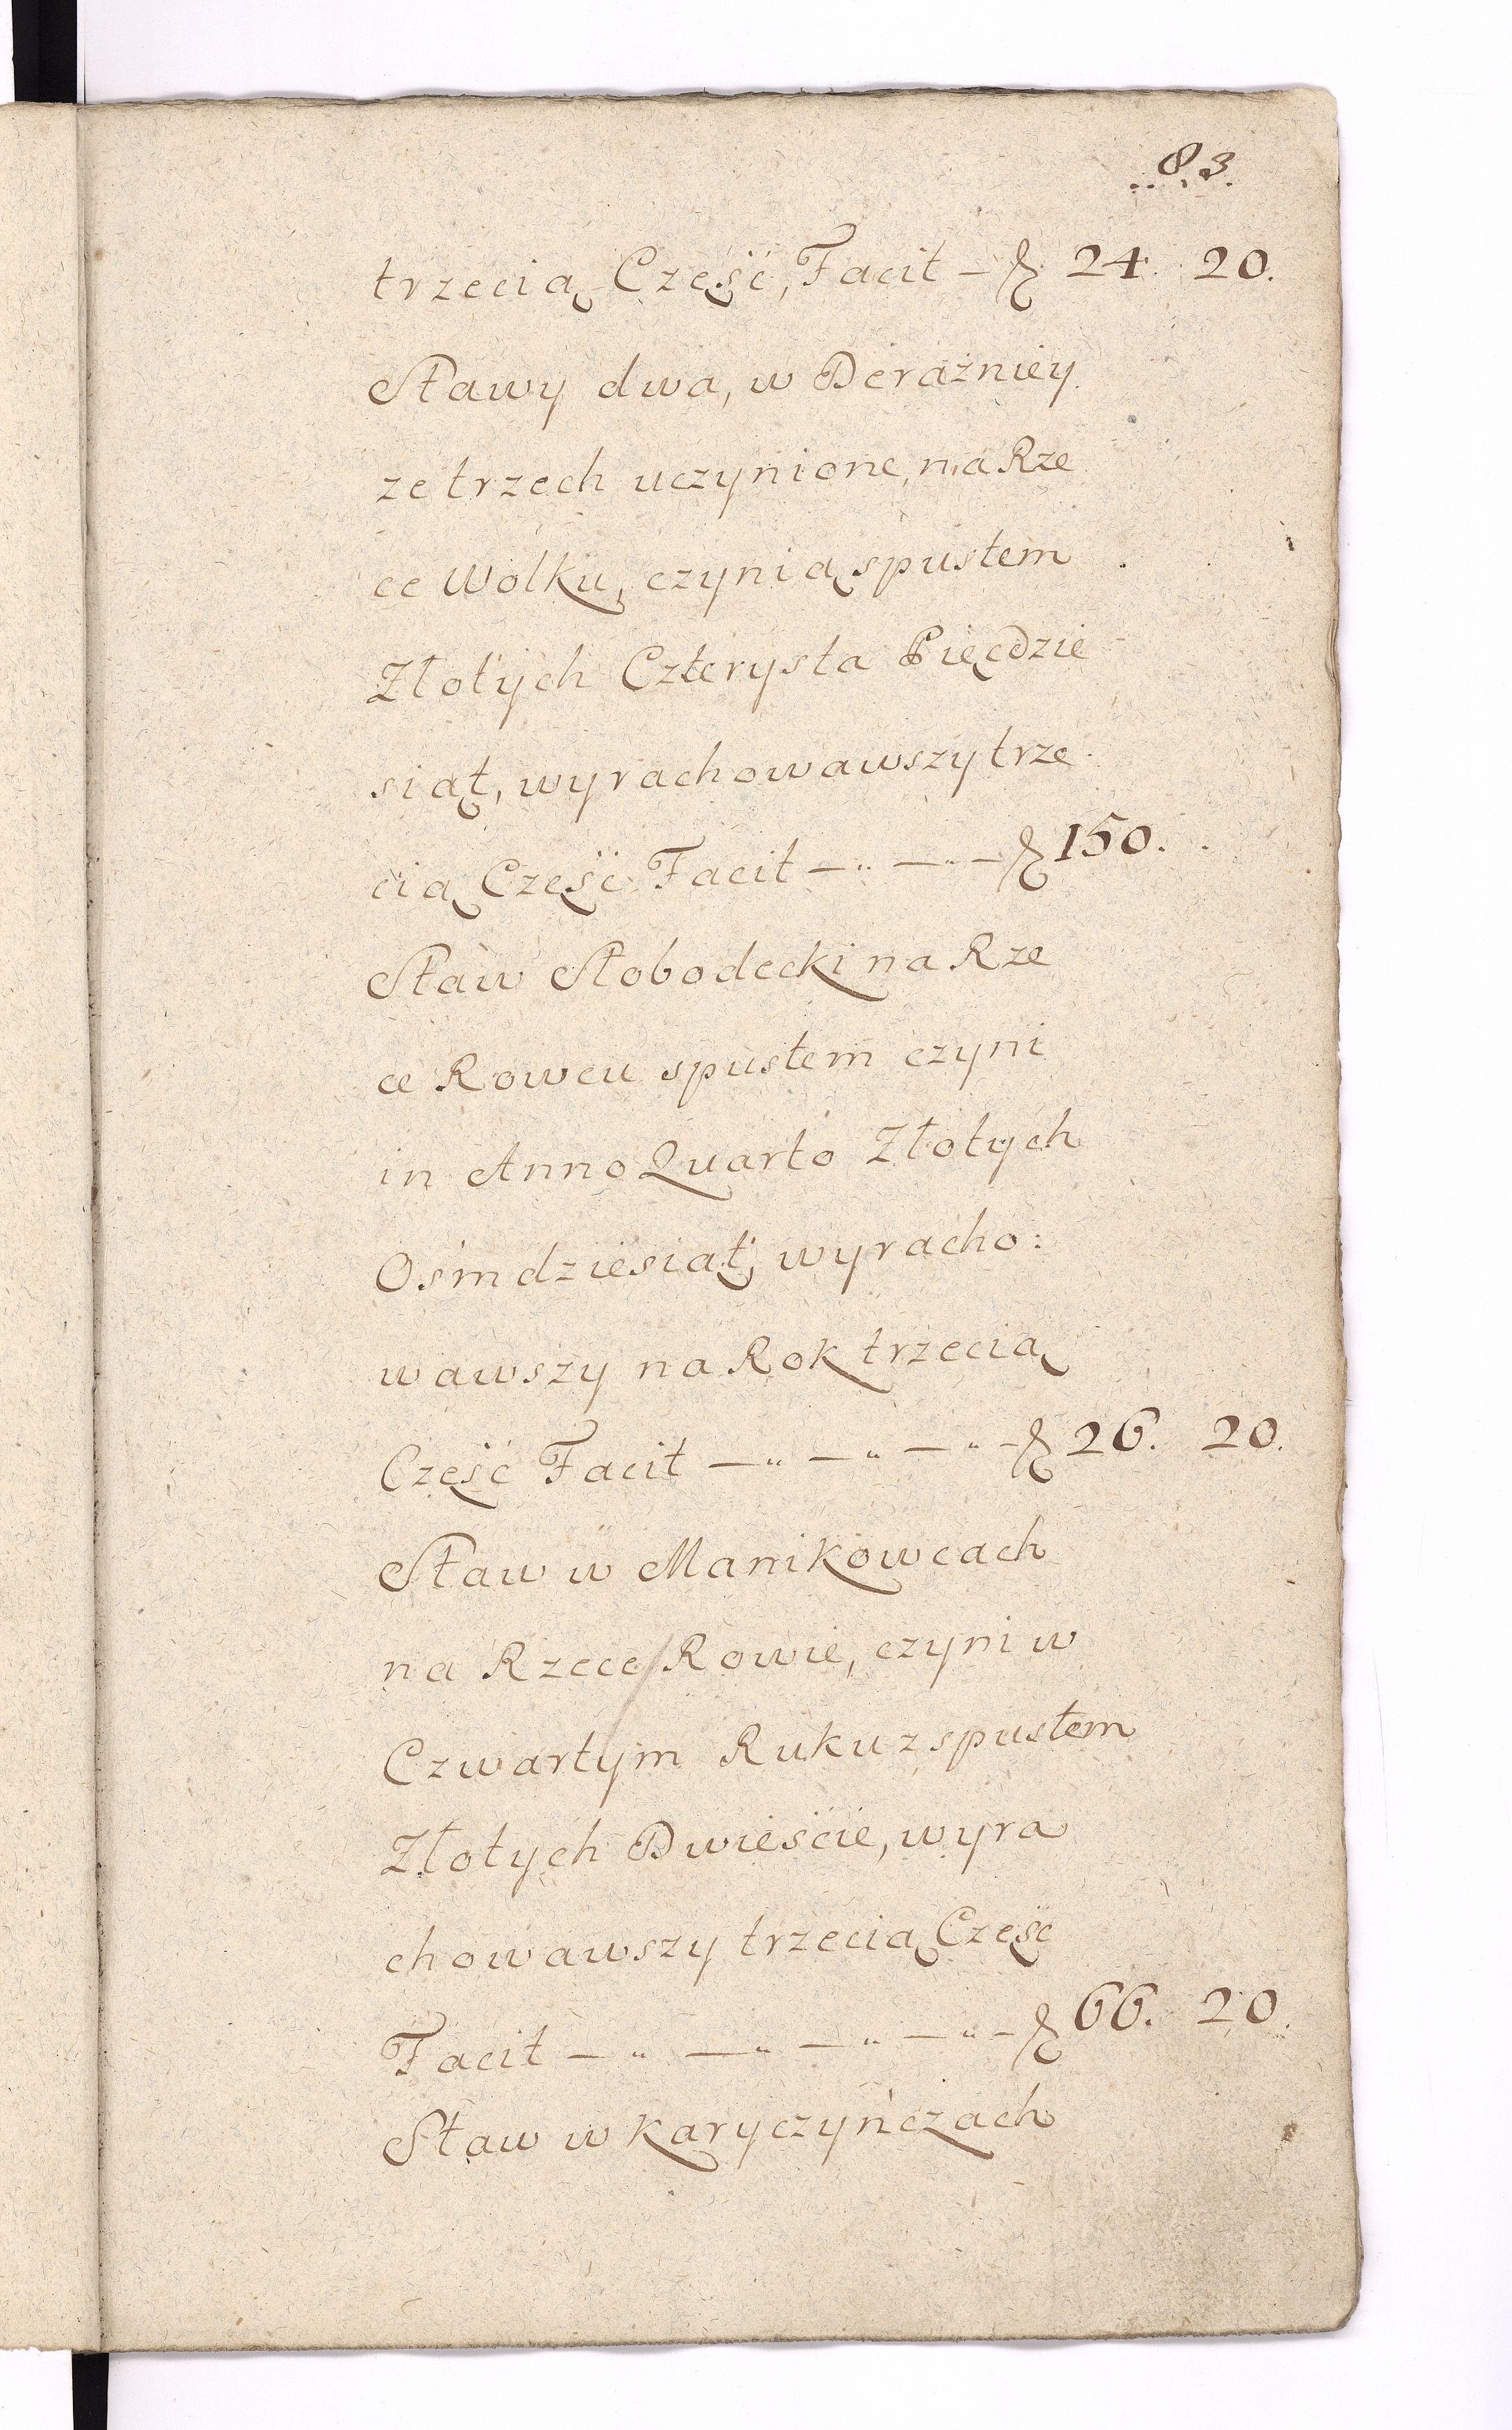 83.
trzecią Część, Facit - zł 24. 20.
Stawy dwa, w Derażniey
ze trzech uczynione, na Rze
ce Wolku, czynią spustem
Złotych Czterysta Pięćdzie
siąt, wyrachowawszy trze
cią Część Facit - „ - „ - zł 150.
Staw Słobodecki na Rze
ce Rowcu spustem czyni
in Anno Quarto Złotych
Ośmdziesiąt, wyracho:
wawszy na Rok trzecią
Część Facit - „ - „ - „ - zł 26. 20.
Staw w Manikowcach
na Rzece Rowie, czyni w
Czwartym Ruku z spustem
Złotych Dwieście, wyra
chowawszy trzecią Część
Facit - „ - „ - „ - „ - zł 66. 20.
Staw w Karyczyńczach